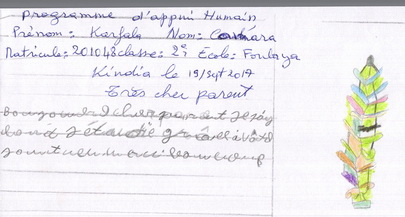 Programme d'appui Humain
Prénom: Karfala Nom: Camara
Matricule: 201048 classe: 2e École: Foulaya
Kindia le 19/sept 2017
Très cher parent
bonjour cher parent je
étudie grâce à votre
soutien merci beaucoup